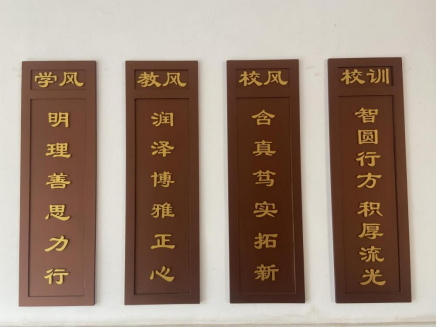 学风
明理善思力行
教风
润泽博雅正心
校风
含真笃实拓新
校训
智圆行方 积厚流光